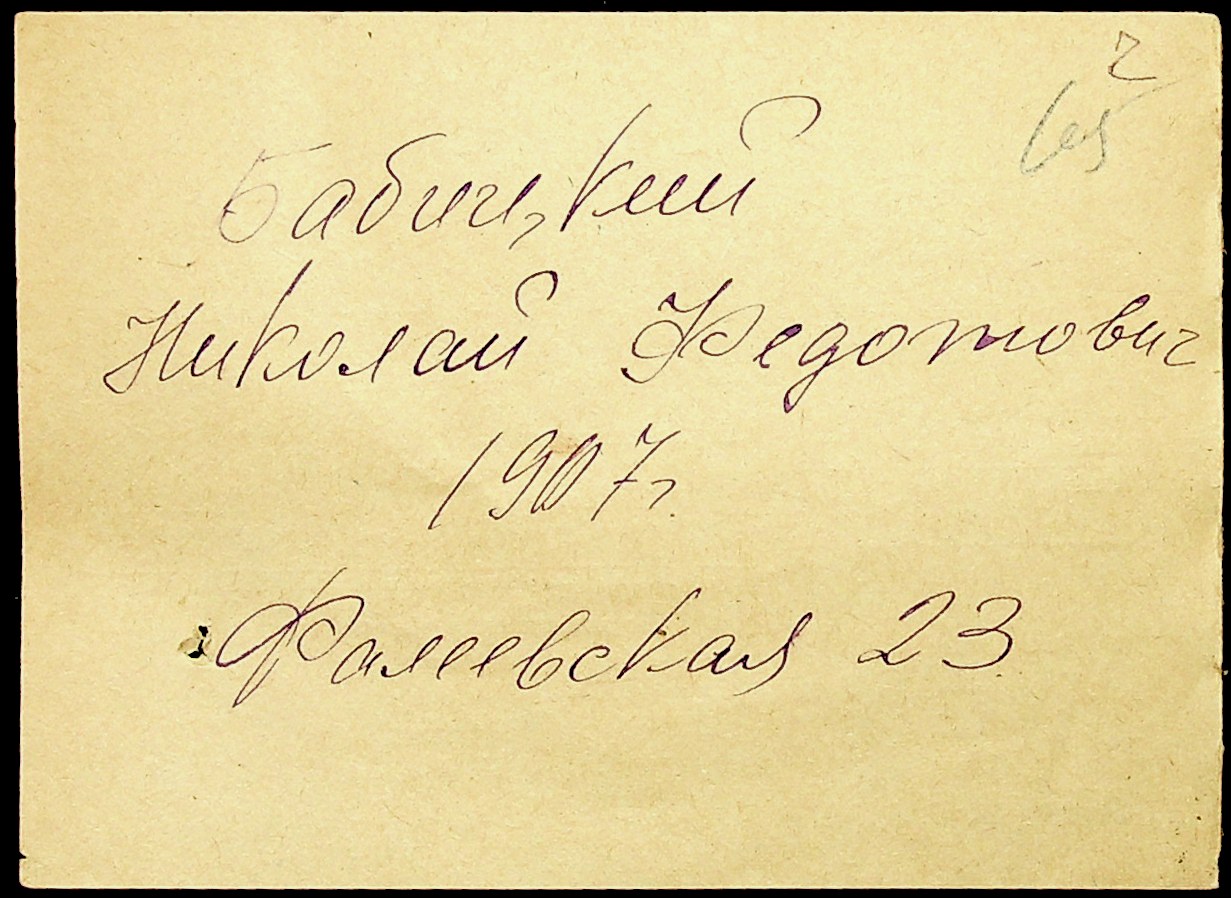 Бабицкий
Николай Федотович
1907г.
Фалеевская 23